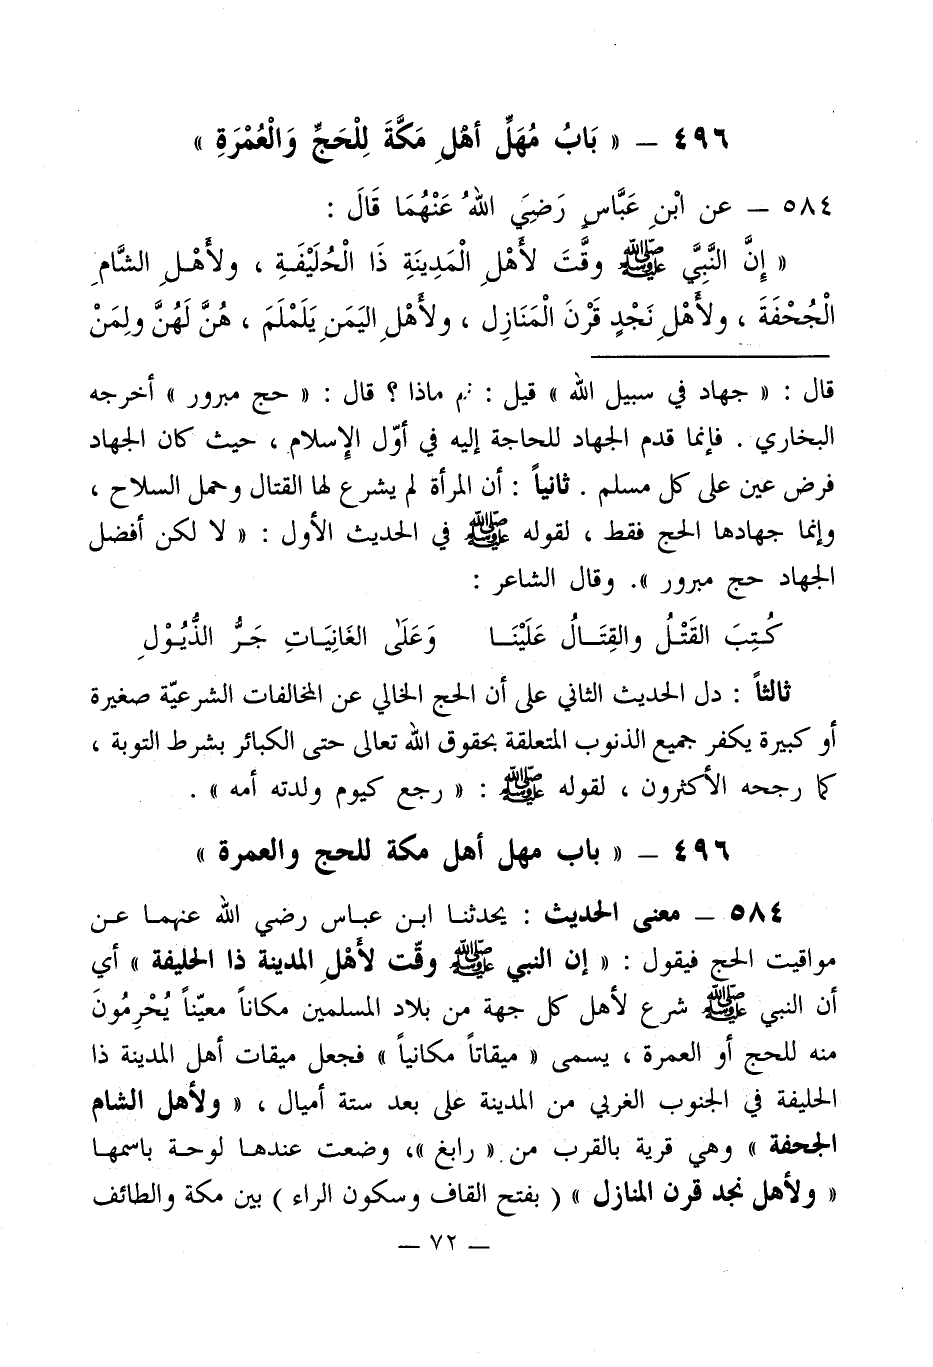 ٤٩٦ – « بَابُ مُهَلِّ أهْلِ مَكَّةَ لِلْحَجِّ وَالْعُمْرَةِ »
٥٨٤ – عن ابْنِ عَبَّاسٍ رَضِيَ اللهُ عَنْهُمَا قَالَ :
« إِنَّ النَّبِيَّ ﷺ وقَّتَ لأَهْلِ الْمَدِينَةِ ذَا الْحُلَيْفَةِ ، ولأَهْلِ الشَّامِ
الْجُحْفَةَ ، ولأَهْلِ نَجْدٍ قَرْنَ الْمَنَازِلِ ، ولأَهْلِ اليَمَنِ يَلَمْلَمَ ، هُنَّ لَهُنَّ ولِمَنْ
قال : « جهاد في سبيل الله » قيل : ثم ماذا ؟ قال : « حج مبرور » أخرجه
البخاري . فإنما قدم الجهاد للحاجة إليه في أوّل الإِسلام ، حيث كان الجهاد
فرض عين على كل مسلم . ثانياً : أن المرأة لم يشرع لها القتال وحمل السلاح ،
وإنما جهادها الحج فقط ، لقوله ﷺ في الحديث الأول : « لا لكن أفضل
الجهاد حج مبرور ». وقال الشاعر :
كُتِبَ القَتْلُ والقِتَالُ عَلَيْنَا وَعَلَى الغَانِيَاتِ جَرُّ الذُّيُوْلِ
ثالثاً : دل الحديث الثاني على أن الحج الخالي عن المخالفات الشرعيّة صغيرة
أو كبيرة يكفر جميع الذنوب المتعلقة بحقوق الله تعالى حتى الكبائر بشرط التوبة ،
كما رجحه الأكثرون ، لقوله ﷺ : « رجع كيوم ولدته أمه » .
٤٩٦ – « باب مهل أهل مكة للحج والعمرة »
٥٨٤ – معنى الحديث : يحدثنا ابن عباس رضي الله عنهما عن
مواقيت الحج فيقول : « إن النبي ﷺ وقّت لأَهْلِ المدينة ذا الحليفة » أي
أن النبي ﷺ شرع لأهل كل جهة من بلاد المسلمين مكاناً معيّناً يُحْرِمُونَ
منه للحج أو العمرة ، يسمى « ميقاتاً مكانياً » فجعل ميقات أهل المدينة ذا
الحليفة في الجنوب الغربي من المدينة على بعد ستة أميال ، « ولأهل الشام
الجحفة » وهي قرية بالقرب من « رابغ »، وضعت عندها لوحة باسمها
« ولأهل نجد قرن المنازل » ( بفتح القاف وسكون الراء ) بين مكة والطائف
– ٧٢ –